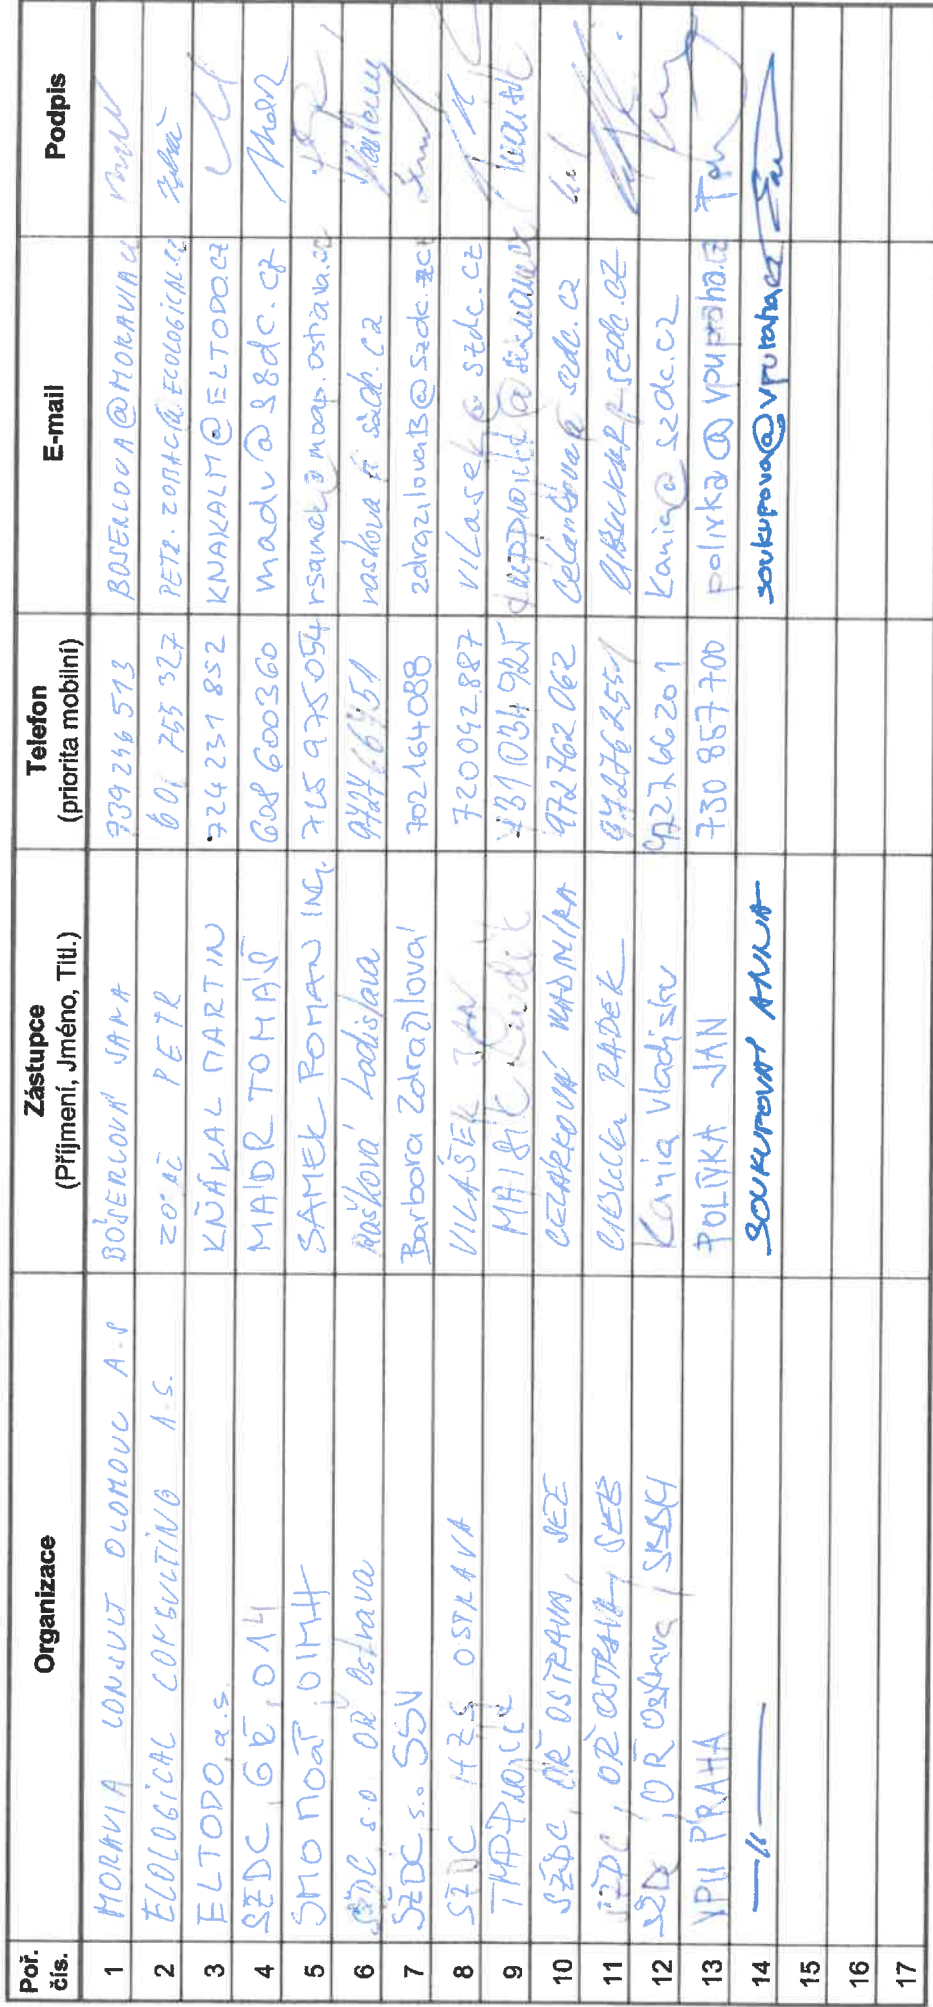 Poř. čís. Organizace Zástupce (Příjmení, Jméno, Titl.) Telefon (priorita mobilní) E-mail Podpis
1 MORAVIA CONSULT OLOMOUC A.S BÖSERLOVÁ JANA 739246573 BOSERLOVA@MORAVIA.CZ
2 ECOLOGICAL CONSULTING A.S. ZOBAČ PETR 601 755 327 PETR.ZOBAC@ECOLOGICAL.CZ
3 ELTODO, a.s. KŇÁKAL MARTIN 724 231 852 KNAKALM@ELTODO.CZ
4 SŽDC, GŘ, O14 MÁDR TOMÁŠ 608 600360 madr@szdc.cz
5 SMO MOaP, OIMH SAMEK ROMAN ING. 725 975 054 rsamek@moap.ostrava.cz
6 SŽDC, s.o OŘ Ostrava Rašková Ladislava 972766451 raskova@szdc.cz
7 SŽDC s.o. SSV Barbora Zdražilová 702164088 zdrazilovaB@szdc.cz
8 SŽDC HZS OSTRAVA VILÁŠEK JAN 720092887 vilasek@szdc.cz
9 731034925
10 SŽDC, OŘ OSTRAVA, SEE 972762062 szdc.cz
11 SŽDC, OŘ OSTRAVA, SEE CIBULKA RADEK 972762551 CIBULKAR@szdc.cz
12 SŽDC, OŘ Ostrava, Kania Vladislav 972766201 Kania@szdc.cz
13 VPU PRAHA POLÍVKA JAN 730 857 700 polivka@vpupraha.cz
14 —//— SOUKUPOVÁ ANNA soukupova@vpupraha.cz
15
16
17